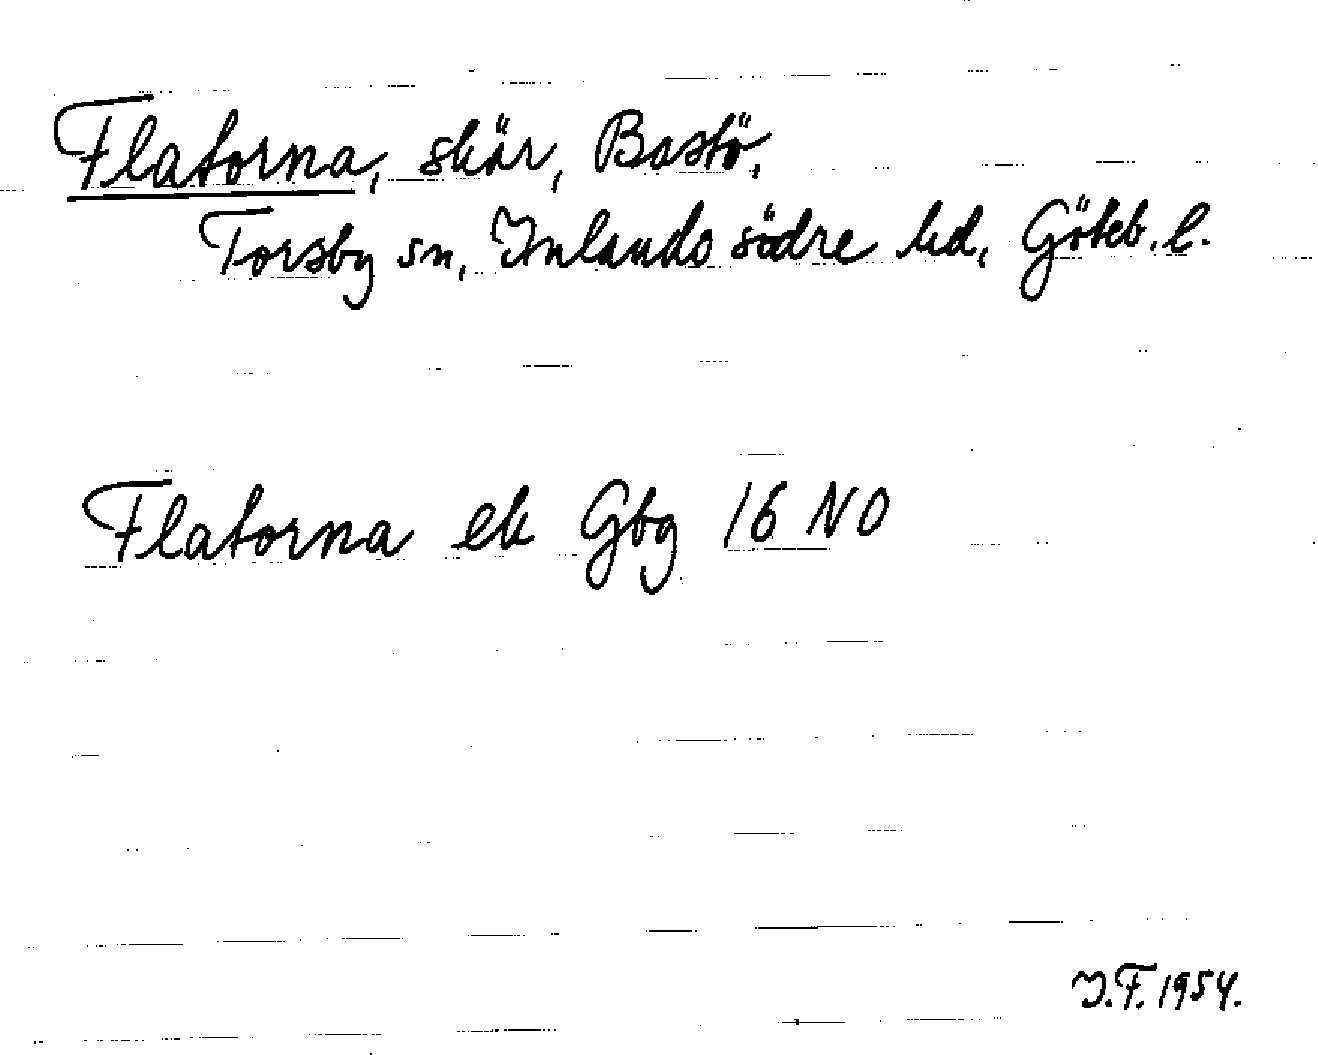 Flatorna, skär, Bastö,
Torsby sn, Inlands södre hd, Göteb. l.
Flatorna ek Gbg 16 NO
I.F. 1954.